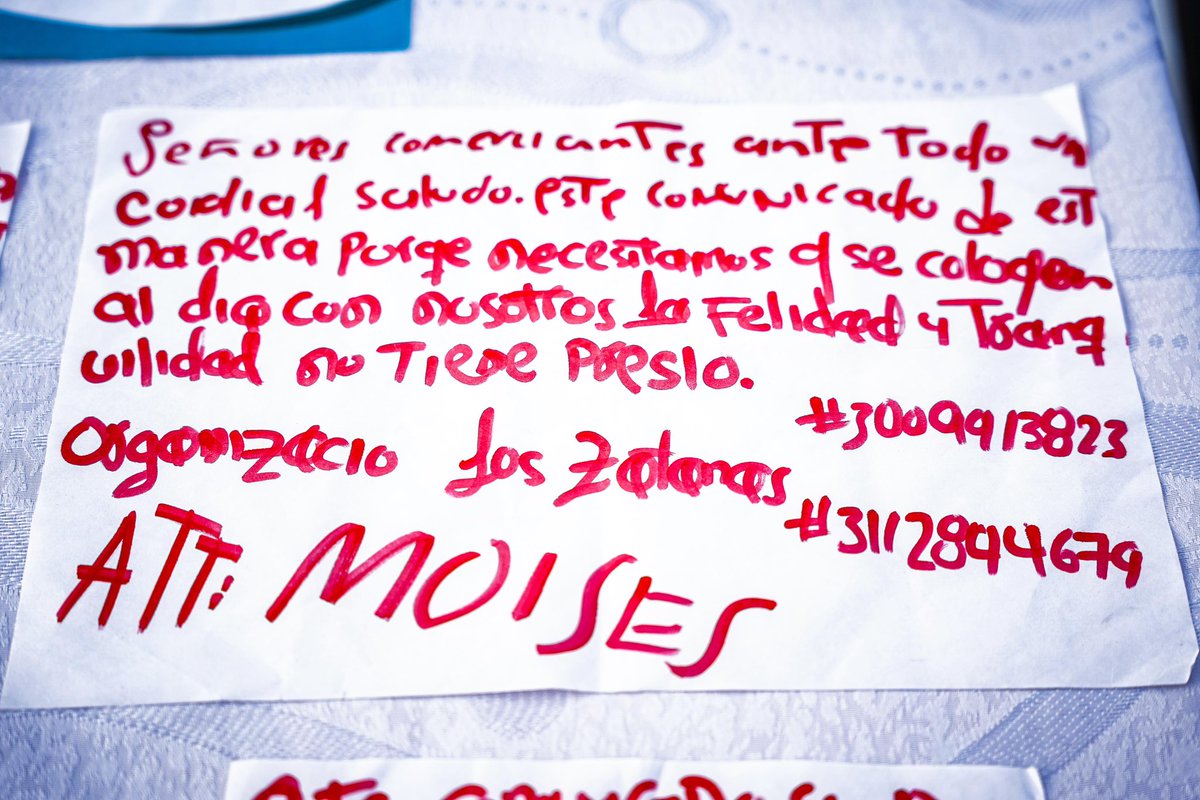 Señores comerciantes ante Todo un
Cordial saludo. este comunicado de est
manera porqe necesitamos q se coloqen
al dia con nosotros la Felidad y Tranq
uilidad no Tiene Preslo.
Organizacio los Zatanas
#3009913823
#3112894679
ATT: MOISES